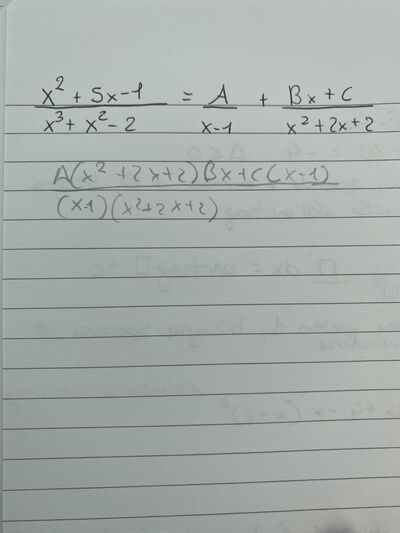 x² + 5x-1 / x³ + x² - 2 = A / x-1 + Bx + C / x² + 2x + 2
A(x² + 2x+2) Bx + C (x-1) / (x-1) (x²+2x+2)